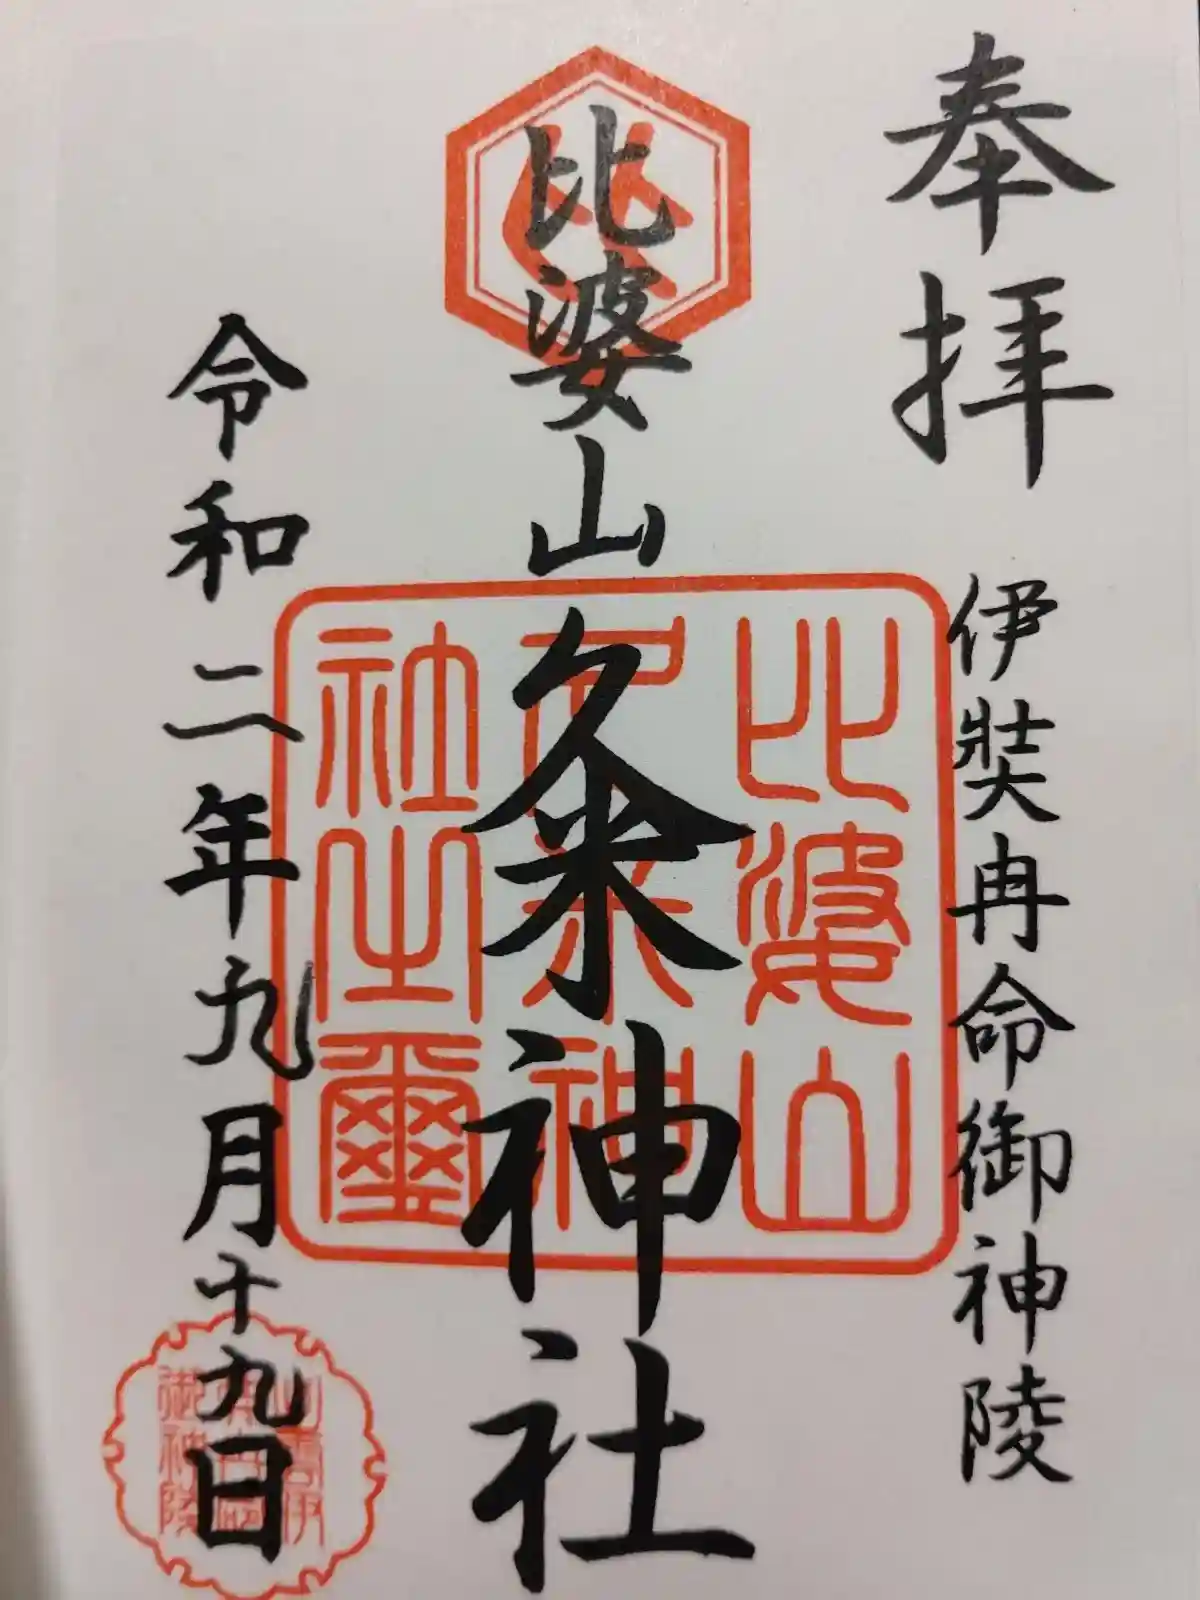 奉拝
伊弉冉命御神陵
比婆山久米神社
比婆山
久米神
社之璽
令和二年九月十九日
御神陵